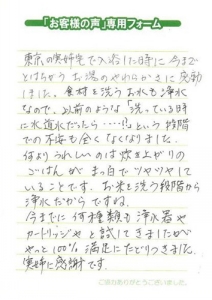 「お客様の声」専用フォーム
東京の実姉宅で入浴した時に今まで
とはちがうお湯のやわらかさに感動
しました。食材を洗うお水も浄水
なので、以前のような「洗っている時
に水道水だったら……!!」という段階
での不安も全くなくなりました。
何よりうれしいのは炊き上がりの
ごはんがまっ白でツヤツヤして
いることです。お米を洗う段階から
浄水だからですね。
今までに何種類も浄水器や
カートリッジやと試してきましたが
やっと100%満足にたどりつきました。
実姉に感謝です。
ご協力ありがとうございました。